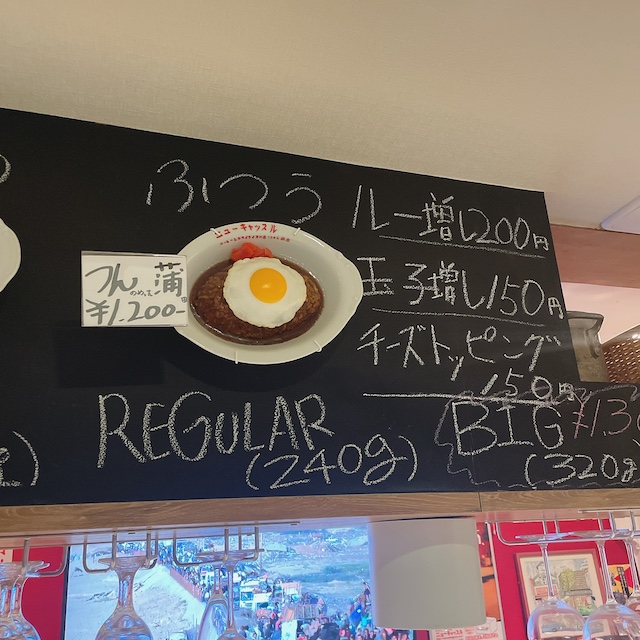 ふつう
ニューキャッスル
つん蒲
¥1,200-
REGULAR
(240g)
ルー増し200円
玉子増し150円
チーズトッピング
150円
BIG ¥13
(320g